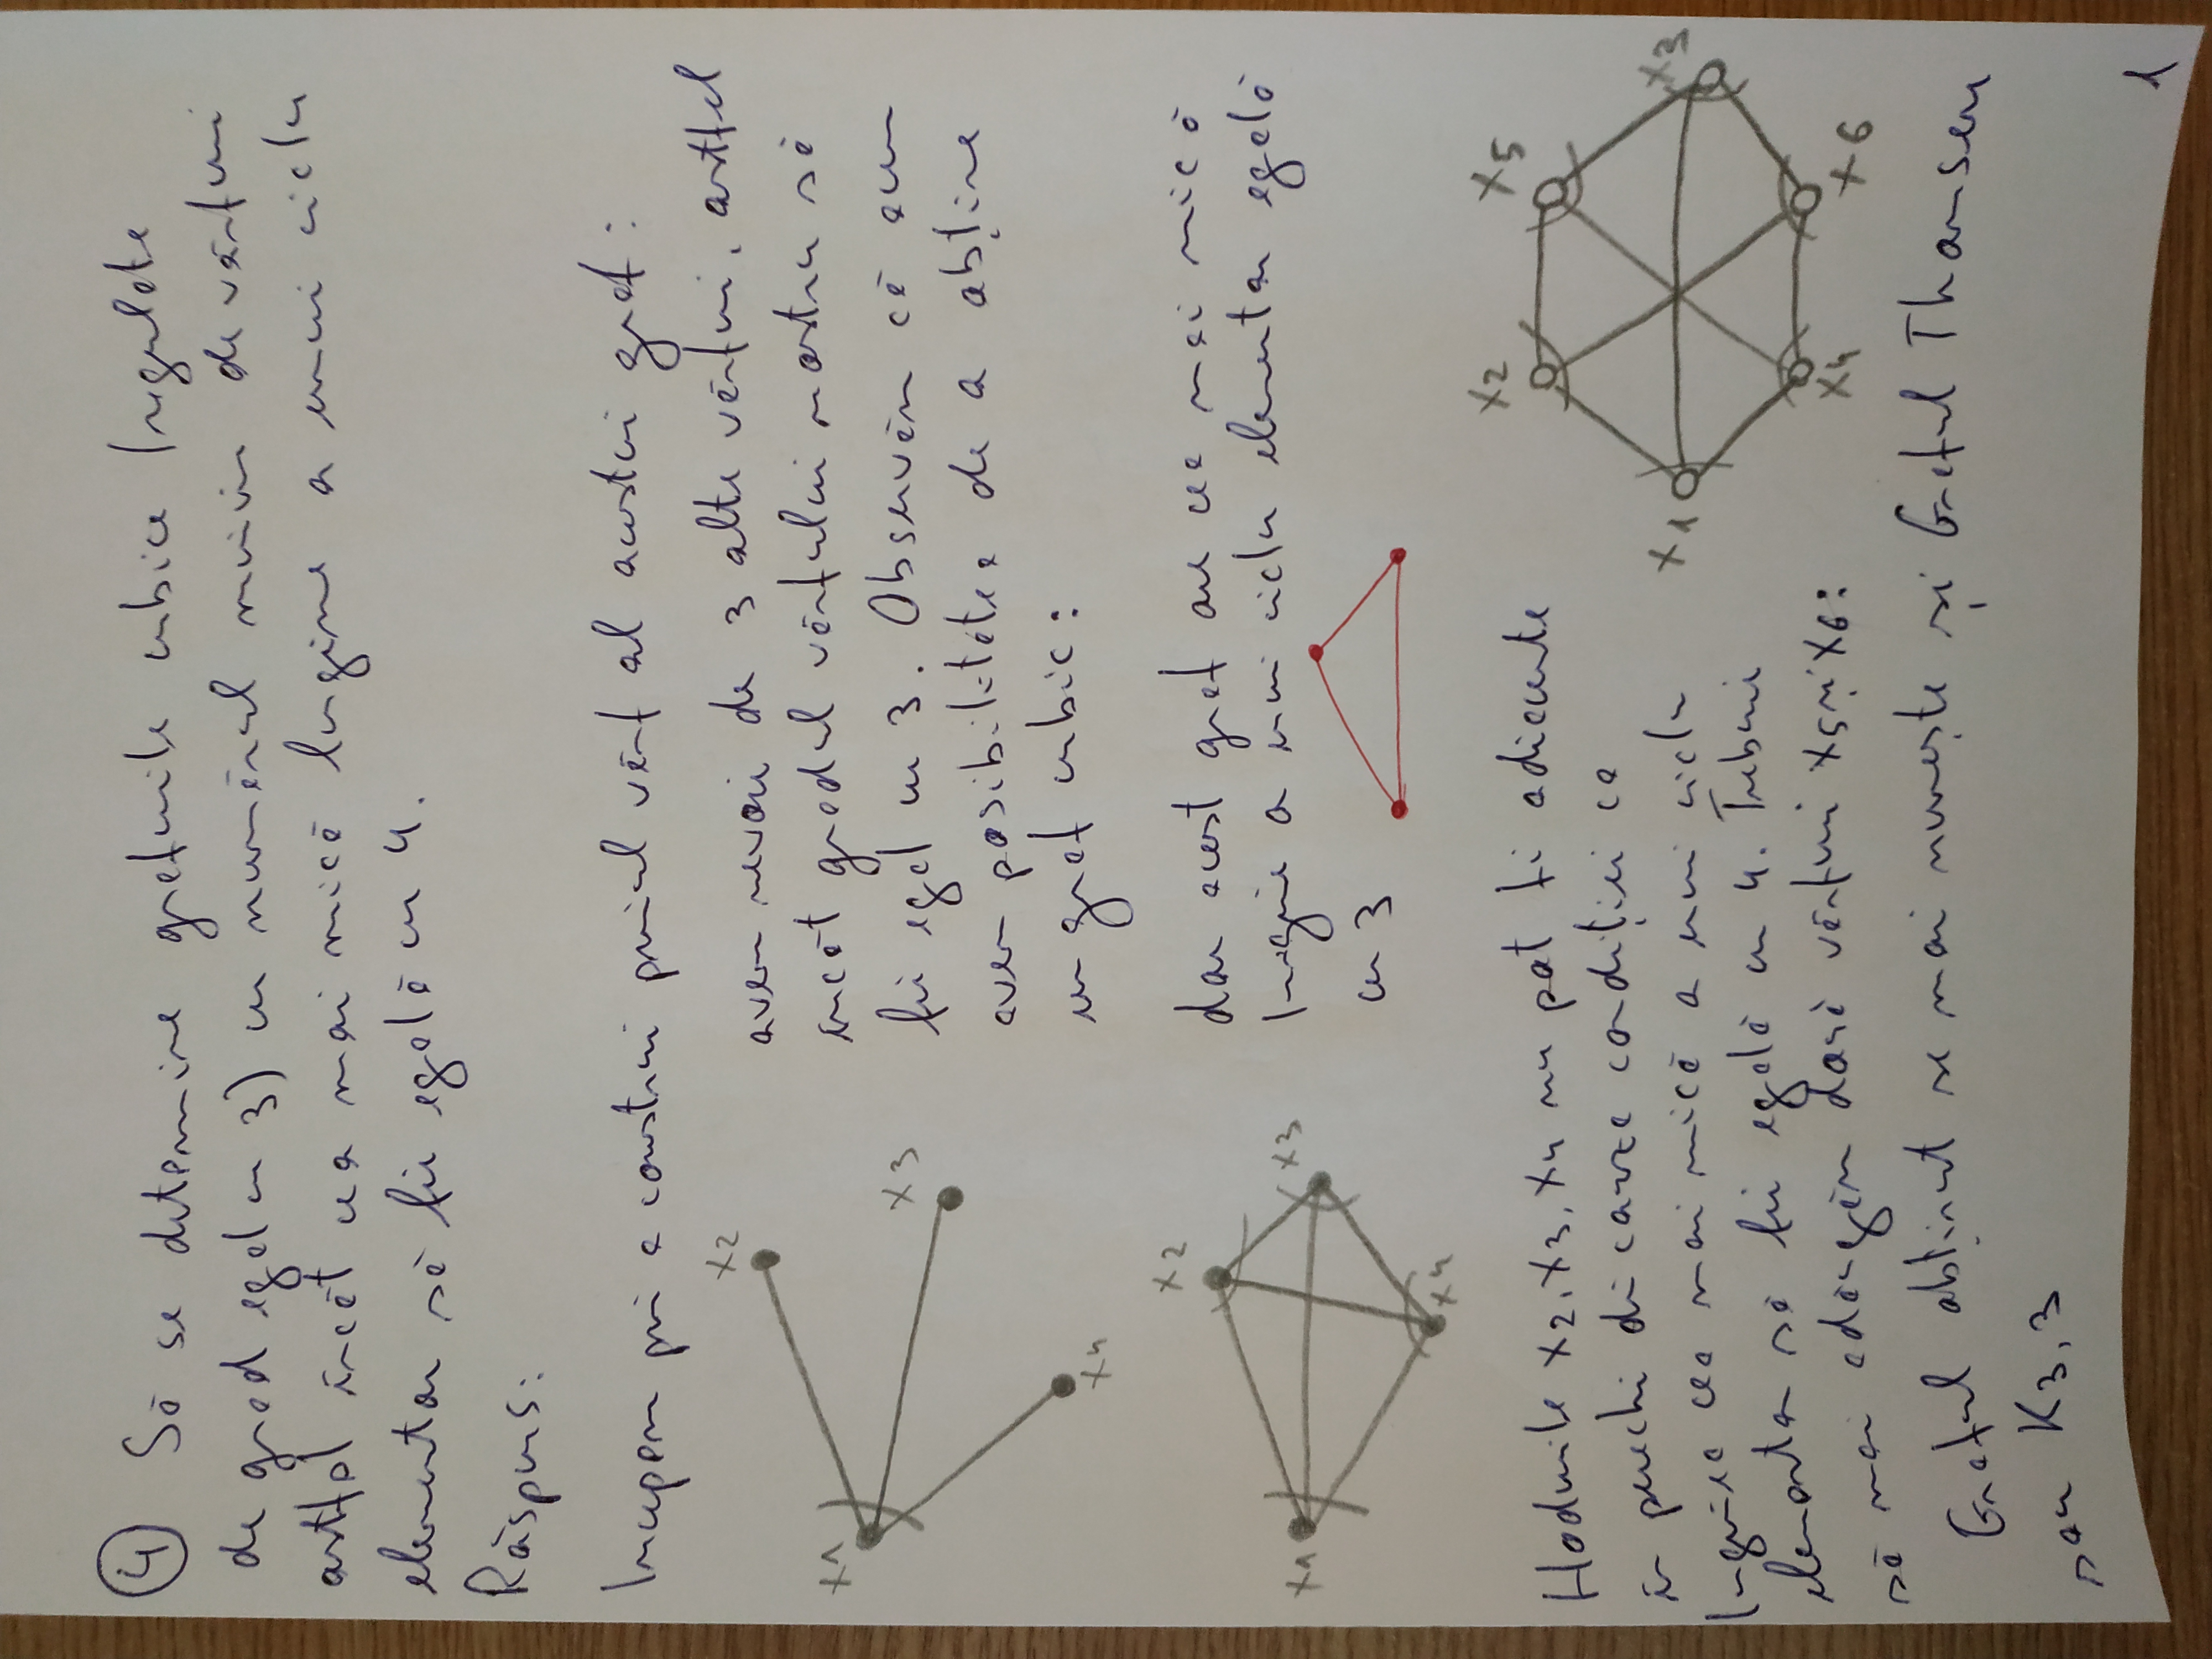 4 Să se determine grafurile cubice (regulate
de grad egal cu 3) cu numărul minim de vârfuri
astfel încât cea mai mică lungime a unui ciclu
elementar să fie egală cu 4.
Răspuns:
Începem prin a construi primul vârf al acestui graf:
x2
x1
x3
x4
avem nevoie de 3 alte vârfuri, astfel
încât gradul vârfului nostru să
fie egal cu 3. Observăm că acum
avem posibilitatea de a obține
un graf cubic:
x2
x1
x3
x4
dar acest graf are cea mai mică
lungime a unui ciclu elementar egală
cu 3
Nodurile x2, x3, x4 nu pot fi adiacente
în perechi din cauza condiției ca
lungimea cea mai mică a unui ciclu
elementar să fie egală cu 4. Trebuie
să mai adăugăm două vârfuri x5 și x6:
x2
x5
x1
x3
x4
x6
Graful obținut se mai numește și Graful Thomsen
sau K3,3
1